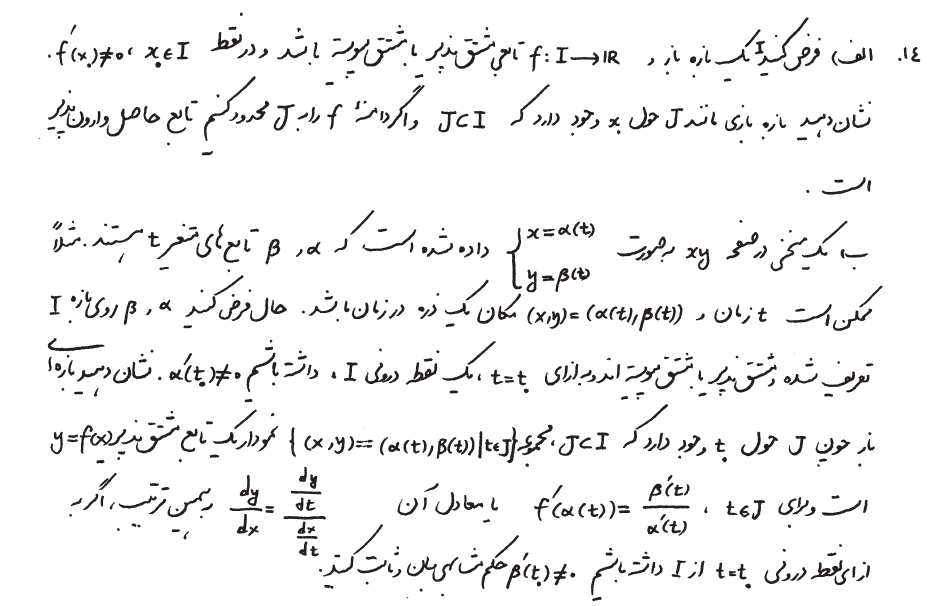 ۱٤. الف) فرض کنید I یک بازه باز و f: I → IR تابعی مشتق پذیر با مشتق پیوسته باشد و در نقطه x₀ ∈ I ، f'(x₀) ≠ 0 .
نشان دهید بازه بازی مانند J حول x₀ وجود دارد که J ⊂ I و اگر دامنهٔ f را به J محدود کنیم تابع حاصل وارون پذیر
است .
ب) یک منحنی در صفحه xy به صورت { x = α(t) , y = β(t) داده شده است که α و β تابع های متغیر t هستند . مثلاً
ممکن است t زمان و (x,y) = (α(t), β(t)) مکان یک ذره در زمان t باشد . حال فرض کنید α و β روی بازه I
تعریف شده و مشتق پذیر با مشتق پیوسته اند و به ازای t = t₀ ، یک نقطه درونی I ، داشته باشیم α'(t₀) ≠ 0 . نشان دهید بازه ای
باز چون J حول t₀ وجود دارد که J ⊂ I ، مجموعه { (x,y) = (α(t), β(t)) | t ∈ J } نمودار یک تابع مشتق پذیر y = f(x)
است و برای t ∈ J ، f'(α(t)) = β'(t) / α'(t) یا معادل آن dy/dx = (dy/dt) / (dx/dt) به همین ترتیب ، اگر به
ازای نقطه درونی t = t₀ از I داشته باشیم β'(t₀) ≠ 0 حکم مشابهی بیان و ثابت کنید .